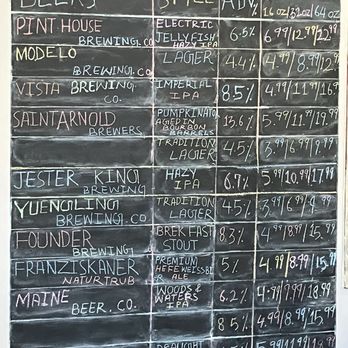 BEERS STYLE ABV 16oz/32oz/64oz
PINT HOUSE BREWING CO. ELECTRIC JELLYFISH HAZY IPA 6.5% 6.99/12.99/22.99
MODELO BREWING CO. LAGER 4.4% 4.99/8.99/12.99
VISTA BREWING CO. IMPERIAL IPA 8.5%
SAINTARNOLD BREWERS PUMPKINATOR AGED IN BOURBON BARRELS 13.6% 5.99/11.99/19.99
TRADITION LAGER 4.5%
JESTER KING BREWING HAZY IPA 6.7% 5.99/10.99/17.99
YUENGLING BREWING CO TRADITION LAGER 4.5%
FOUNDER BREWING BREKFAST STOUT 8.3% 4.99/8.99/15.99
FRANZISKANER NATURTRUB PREMIUM HEFEWEISSBIER ALE 5% 4.99/8.99/15.99
MAINE BEER. CO. WOODS & WATERS IPA 6.2%
8.5% 4.99/8.99/15.99
DRAUGHT